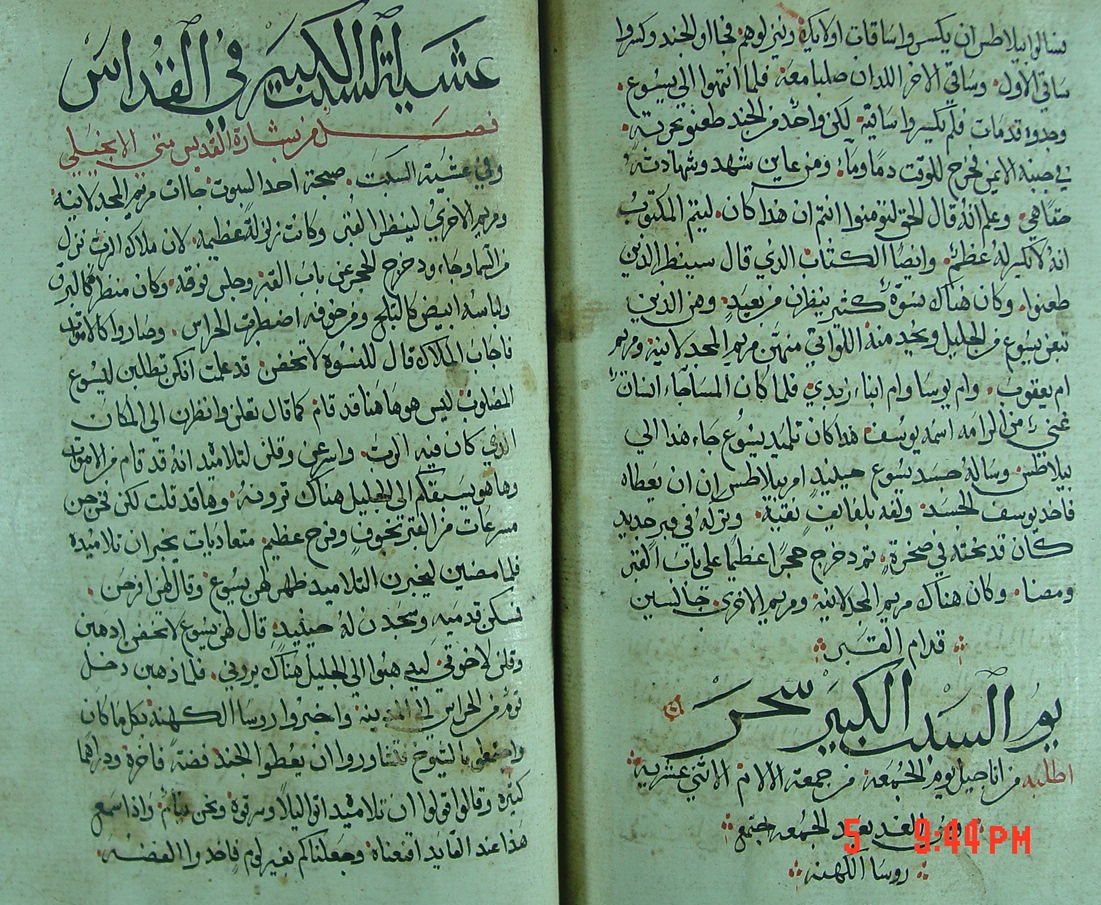 فسالوا بيلاطس ان يكسروا ساقات اولايك وينزلوهم فجااوا الجند وكسروا
ساقي الاول وساقي الاخر اللدان صلبا معه فلما انتهوا الي يسوع
وجدوه قد مات فلم يكسروا ساقيه لكن واحد من الجند طعنه بحربة
في جنبه الايمن فخرج للوقت دم وماء ومن عاين شهد وشهادته
حقا هي وعلم انه قال الحق لتومنوا انتم ان هذا كان ليتم المكتوب
انه لا تكسر له عظم وايضا الكتاب الدي قال سينظر الدين
طعنوا وكان هناك نسوة كثير ينظرن من بعيد وهن الذين
تبعن يسوع من الجليل وتخدمنه اللواتي منهن مريم المجدلانية ومريم
ام يعقوب وام يوسا وام ابناء زبدي فلما كان المسا جاء انسان
غني من الرامه اسمه يوسف هدا كان تلميد يسوع جاء هدا الي
بيلاطس وساله جسد يسوع حينيد امر بيلاطس ان يعطاه
فاخد يوسف الجسد ولفه بلفايف نقية وتركه في قبر جديد
كان قد نحته في صخرة ثم دحرج حجرا عظيما علي باب القبر
ومضا وكان هناك مريم المجدلانية ومريم الاخري جالسين
قدام القبر
يوم السبت الكبير سحر
اطلبه من اناجيل يوم الجمعة من جمعة الالام الاثني عشرية
وفي الغد بعد الجمعه اجتمع
روسا الكهنة
5 9:44 PM
عشية السبت الكبير في القداس
فصل من بشارة القدس متي الانجيلي
وفي عشية السبت صبحة احد السبوت جاات مريم المجدلانية
ومريم الاخري لينظرا القبر وكانت زلزلة عظيمة لان ملاك الرب نزل
من السما وجاء ودحرج الحجر عن باب القبر وجلس فوقه وكان منظره كالبرق
ولباسه ابيض كالثلج ومن خوفه اضطربت الحراس وصاروا كالاموات
فاجاب الملاك قال للنسوة لا تخفن قد علمت انكن تطلبن ليسوع
المصلوب ليس هو هاهنا قد قام كما قال تعلن وانظرن الي المكان
الدي كان فيه الرب واسرعن وقلن لتلاميذه انه قد قام من الاموات
وها هو يسبقكم الي الجليل هناك ترونه وها قد قلت لكن فخرجن
مسرعات من القبر بخوف وفرح عظيم متعاديات يخبران تلاميده
فلما مضين ليخبرن التلاميد ظهر لهن يسوع وقال لهن افرحن
فمسكن قدميه وسجدن له حينيد قال لهن يسوع لا تخفن ادهبن
وقلن لاخوتي ليدهبوا الي الجليل هناك يروني فلما ذهبن دخل
قوم من الحراس الي المدينة واخبروا روسا الكهنة بكل ما كان
بالشيوخ فتشاوروا ان يعطوا الجند فضة فاخرة ودراهما
كثيرة وقالوا قولوا ان تلاميده اتوا ليلا وسرقوه ونحن نيام واذا سمع
هذا عند القايد اقنعناه وجعلناكم بغير لوم فاخدوا الفضة